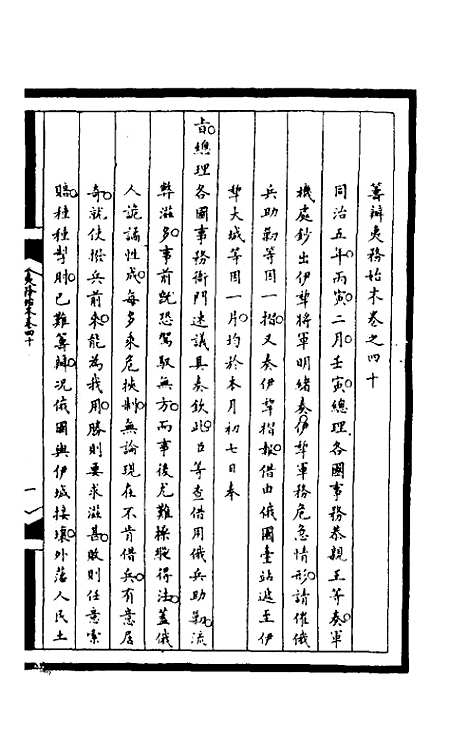 籌辦夷務始末卷之四十
同治五年丙寅二月壬寅總理各國事務恭親王等奏軍
機處鈔出伊犂將軍明緒奏伊犂軍務危急情形請催俄
兵助勦等因一摺又奏伊犂摺報借由俄國臺站遞至伊
犂大城等因一片均於本月初七日奉
旨總理各國事務衙門速議具奏欽此臣等查借用俄兵助勦流
弊滋多事前旣恐駕馭無方而事後尤難操縱得法蓋俄
人詭譎性成每多乘危挾制無論現在不肯借兵有意居
奇就使撥兵前來能為我用勝則要求滋甚敗則任意索
賠種種掣肘已難籌辦况俄國與伊城接壤外藩人民土
夷務始末卷四十
一